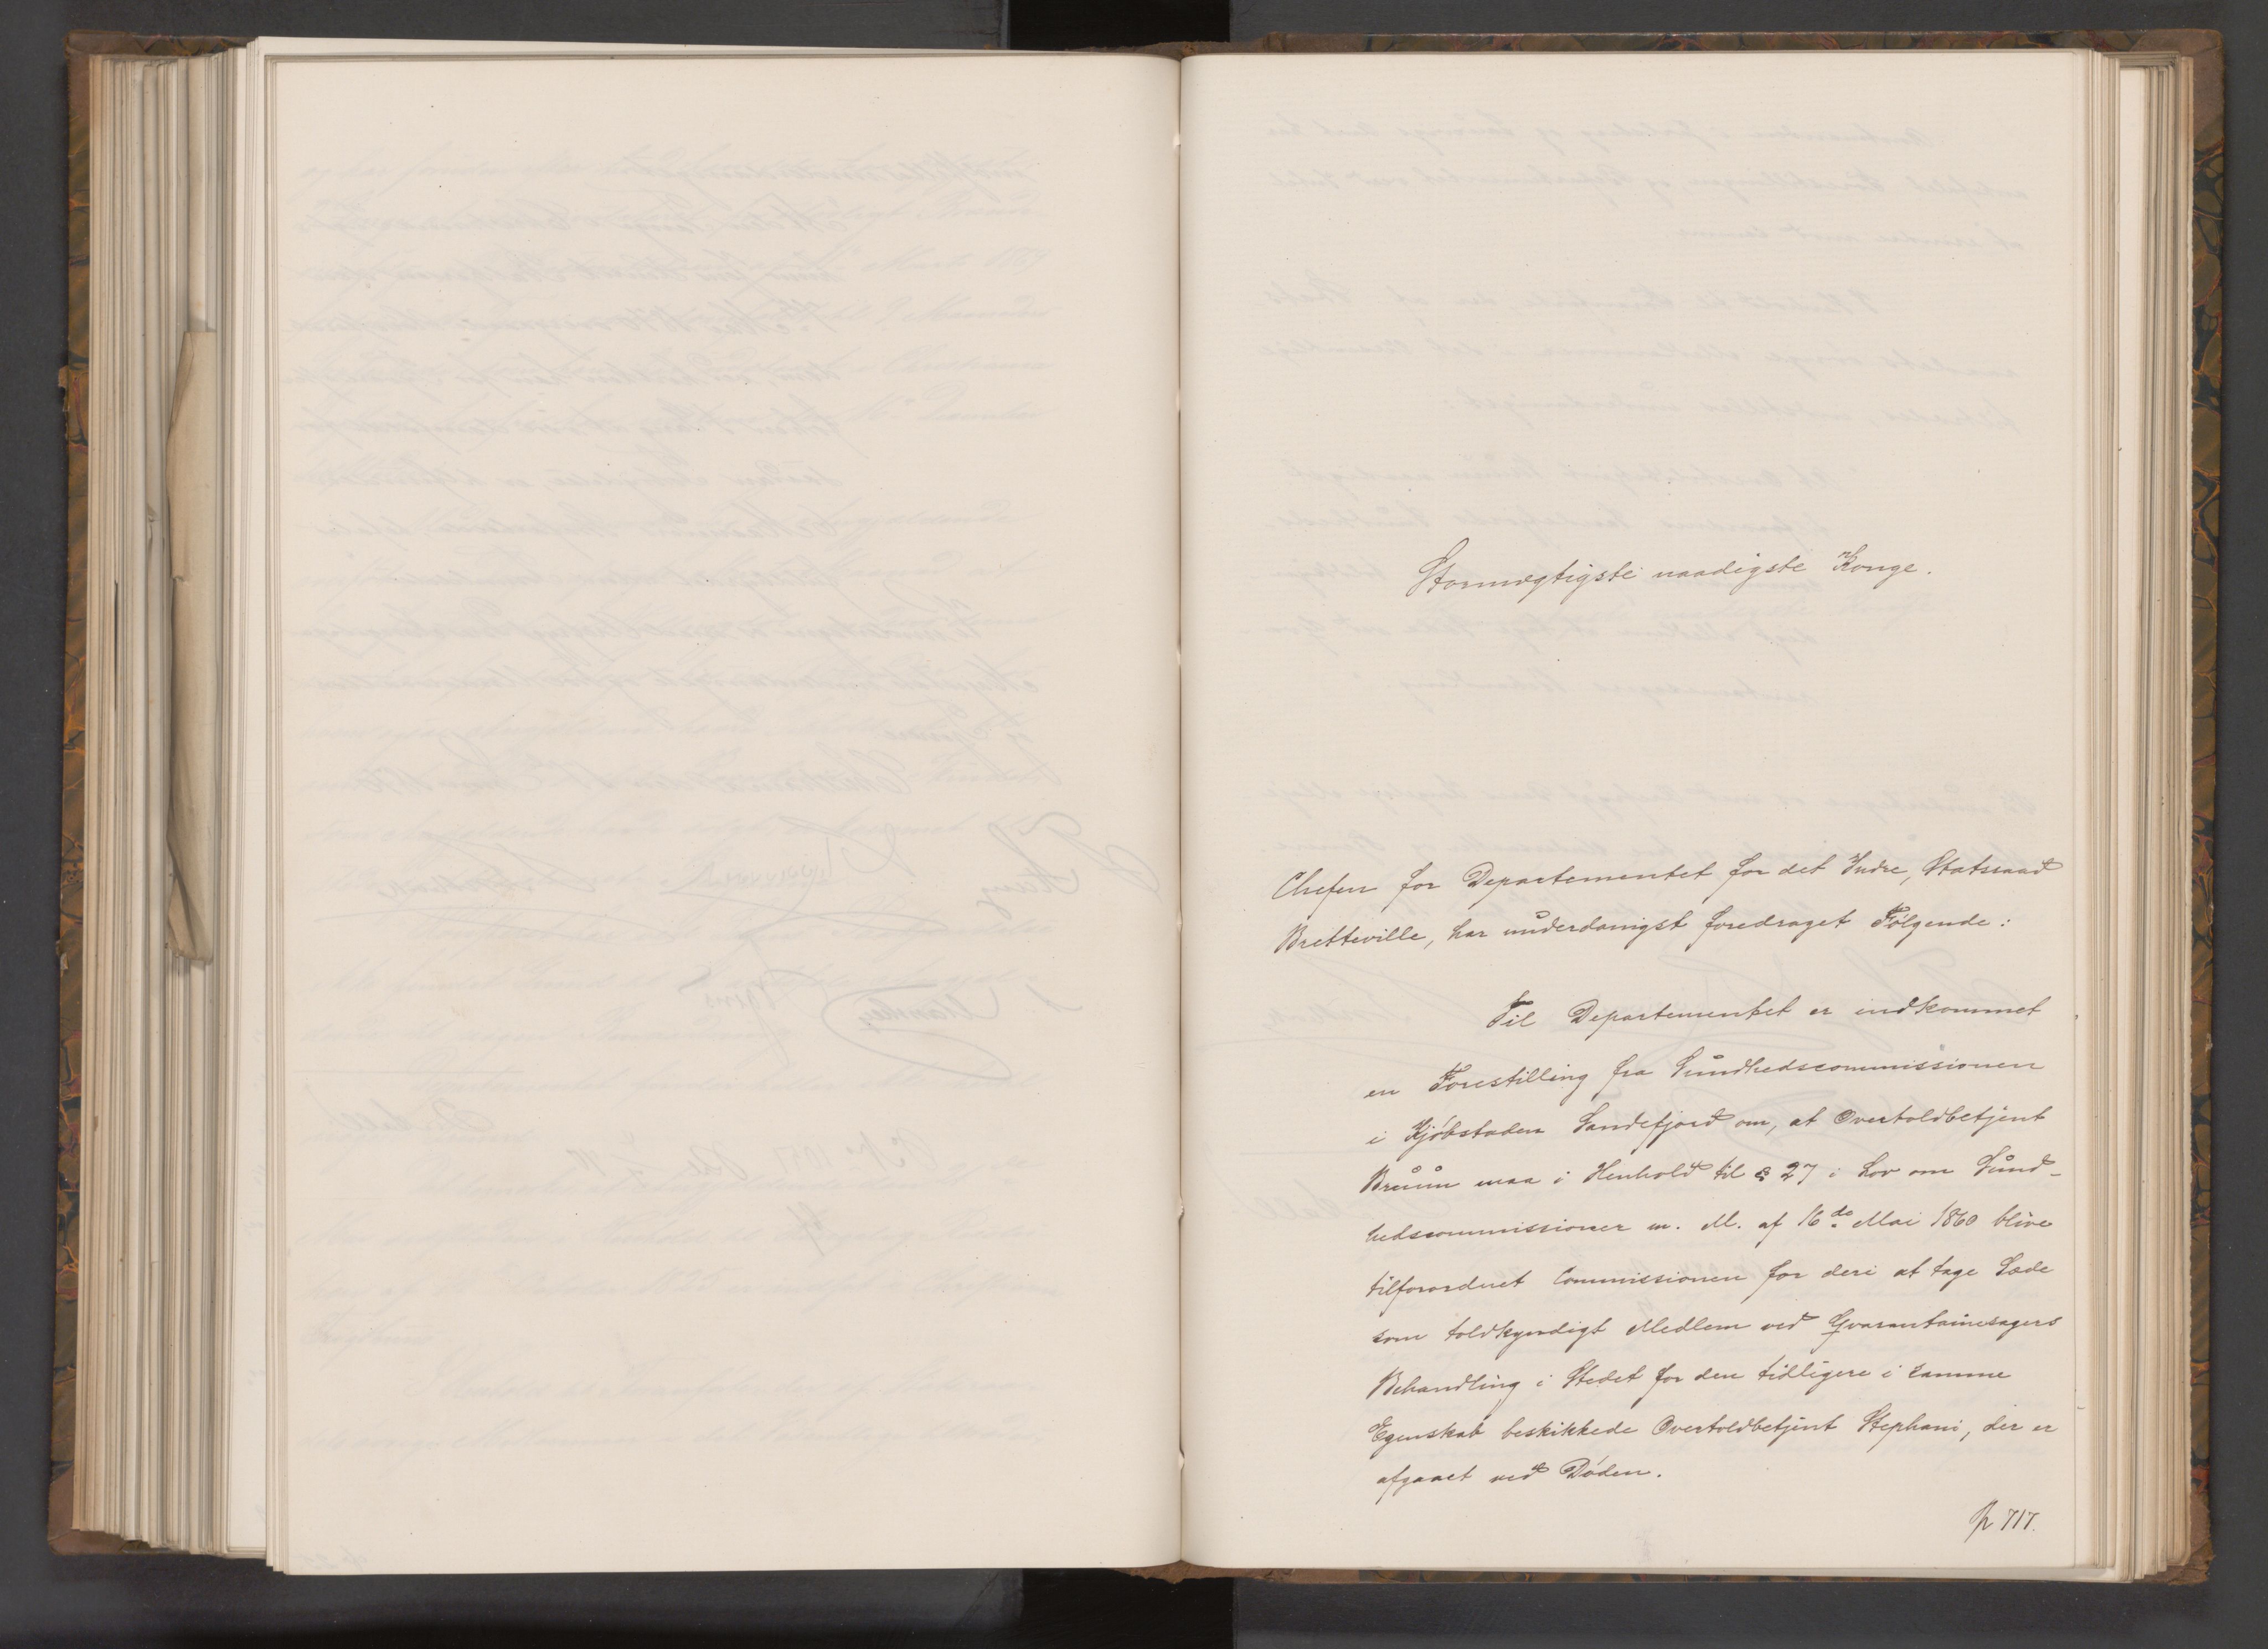 Stormægtigste naadigste Konge.
Chefen for Departementet for det Indre, Statsraad
Bretteville, har underdanigst foredraget Følgende:
Til Departementet er indkommet
en Forestilling fra Sundhedscommissionen
i Kjøbstaden Sandefjord om, at Overtoldbetjent
Bruun maa i Henhold til § 27 i Lov om Sund-
hedscommissioner m. M. af 16de Mai 1860 blive
tilforordnet Commissionen for deri at tage Sæde
som toldkyndigt Medlem ved Qvarantainesagers
Behandling i Stedet for den tidligere i samme
Egenskab beskikkede Overtoldbetjent Stephani, der er
afgaaet ved Døden.
p 717.